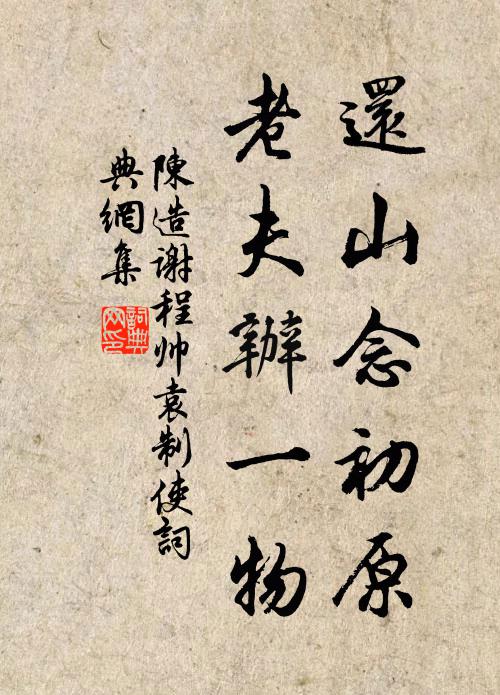 還山念初原
老夫辦一物
陳造謝程帅袁制使詞
典網集
詞典
网印